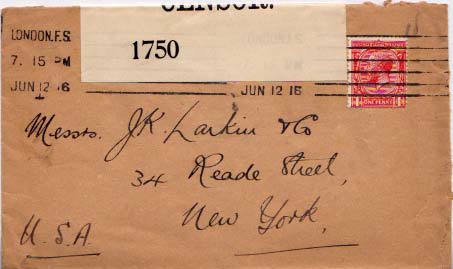 CENSOR.
1750
LONDON.F.S.
7. 15 PM
JUN 12 16
JUN 12 16
ONE PENNY
Messrs. J.K. Larkin & Co
34 Reade Street,
New York,
U.S.A.